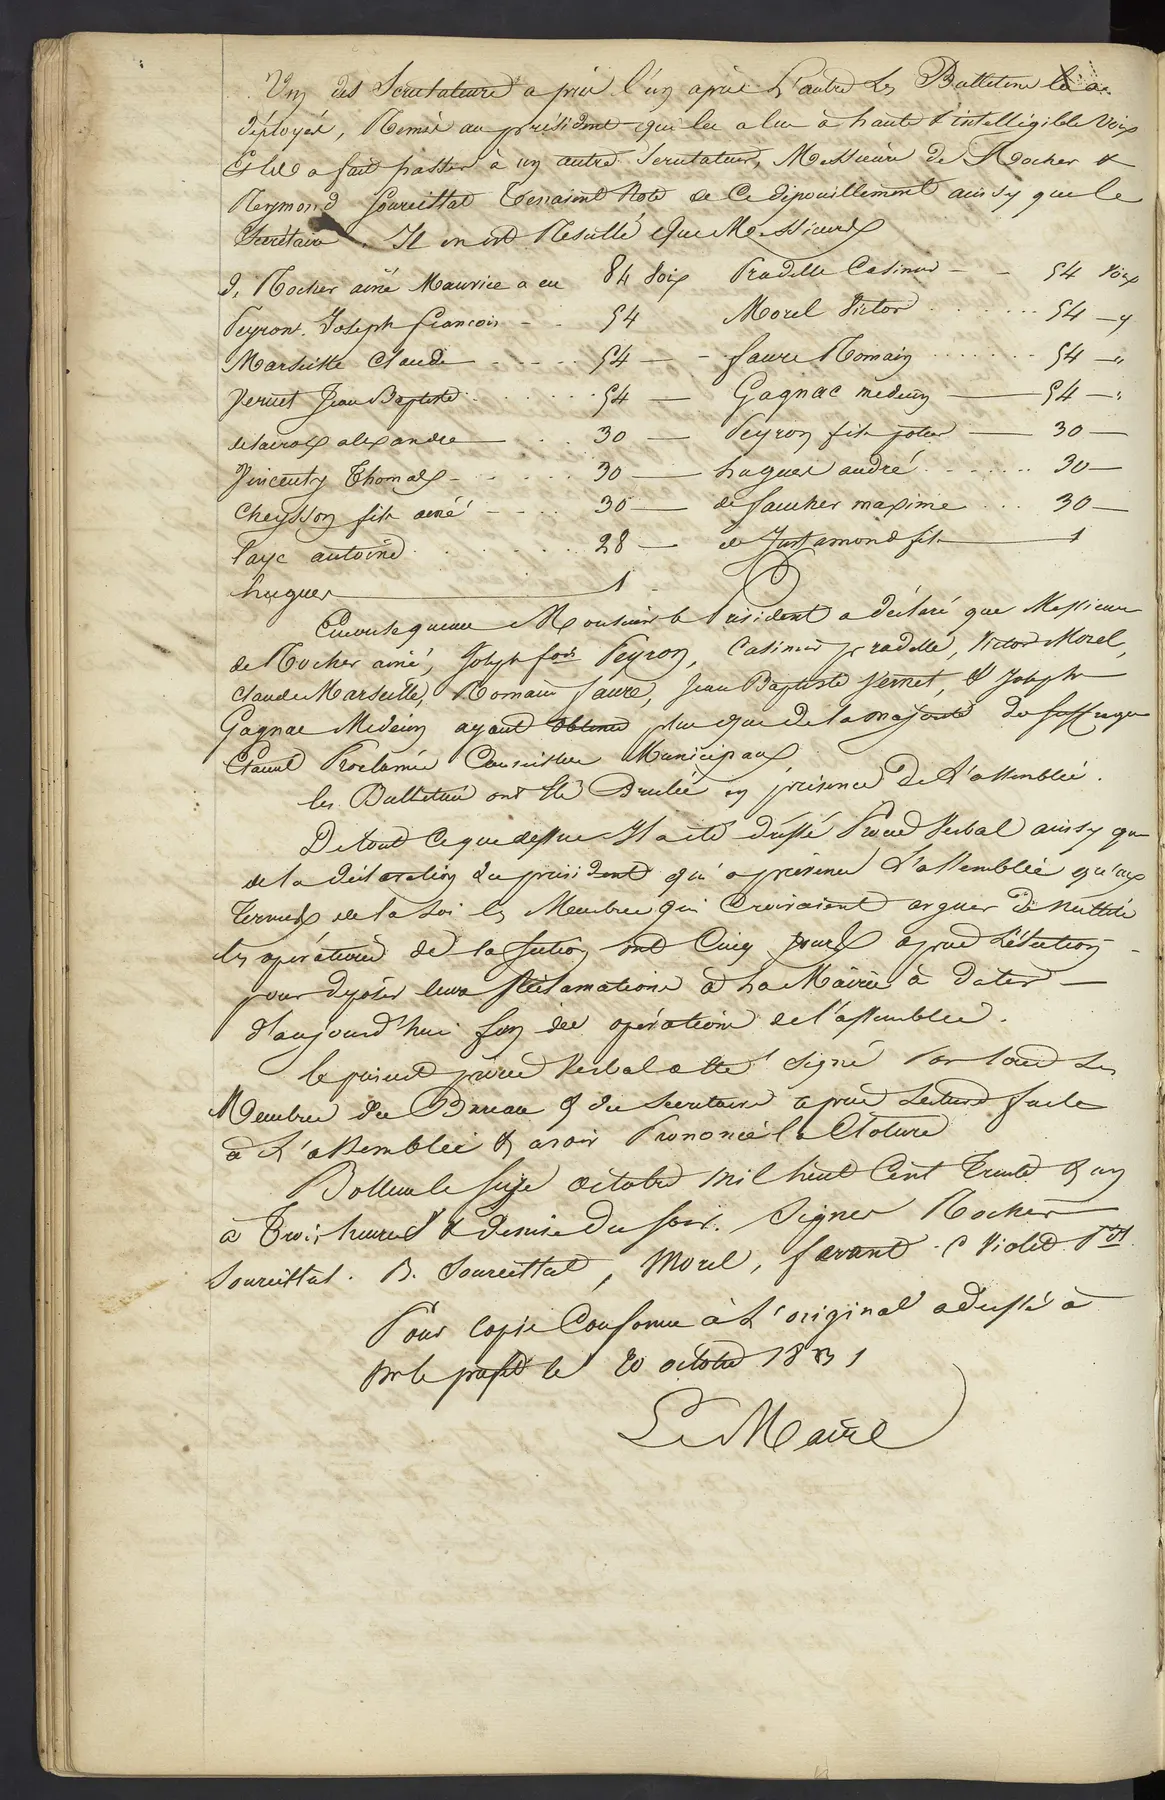 Un des Scrutateurs a pris l'un après L'autre Les Bulletins les a
déployés, Remis au président qui les a lu à haute & intelligible Voix
Et les a fait passer à un autre Scrutateur, Messieurs de Rocher &
Reymond Sourcillat Tenaient Note de Ce dépouillement ainsy que le
Secrétaire. Il en est Résulté Que Messieurs
d. Rocher ainé Maurice a eu 84 Voix Pradelle Casimir - - 54 Voix
Peyron Joseph francois - - 54 Morel Victor 54 - "
Marseille Claude 54 - - faure Romain 54 - "
Vernet Jean Baptiste 54 - Gagnac médecin 54 - "
delacroix alexandre 30 - Peyron fils 30 -
Vincenty Thomas 30 - hugues andré 30 -
Cheysson fils ainé 30 - de faucher maxime 30 -
Paye antoine 28 - de Justamond fils 1
hugues 1
Monsieur le Président a déclaré que Messieurs
de Rocher ainé, Joseph fois Peyron, Casimir pradelle, Victor Morel,
Claude Marseille, Romain faure, Jean Baptiste Vernet, & Joseph
Gagnac Médecin ayant obtenu plus que de la majorité des suffrages
Etaient Proclamés Conseillers Municipaux
les Bulletins ont Eté Brulés en présence De L'assemblée.
De tout Ce que dessus Il a été dressé Procès Verbal ainsy que
de la déclaration du président qui a prévenu L'assemblée qu'aux
Termes de la Loi les Membres qui Croiraient arguer de Nullité
les opérations de la Section ont Cinq jours après L'élection -
pour déposer leurs Réclamations à La Mairie à Dater -
d'aujourd'hui fin des opérations de l'assemblée.
le présent procès Verbal a été signé Par tous Les
Membres du Bureau & du Secretaire après Lecture faite
à L'assemblée & avoir Prononcé la Cloture
Bollene le Seize octobre mil huit Cent Trente & un
à Trois heures & demie du soir. Signés Rocher
Sourcillat. B. Sourcillat, Morel, favant. C Violet Pdt
Pour Copie Conforme à L'original adressé à
Mr le préfet le 20 octobre 1831
Le Maire